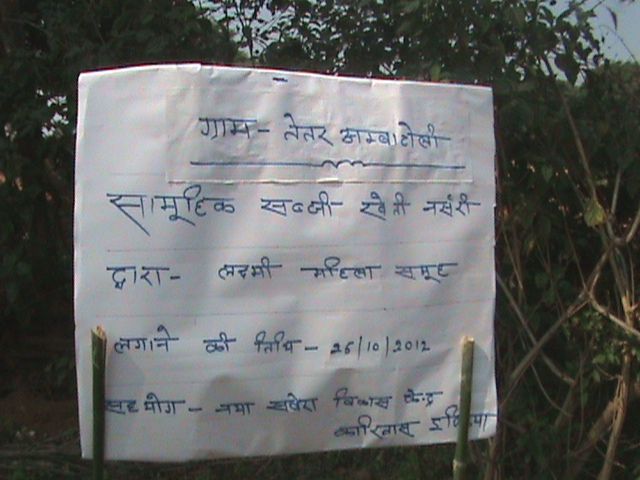 ग्राम - तेतर अम्बाटोली
सामूहिक सब्जी खेती नर्सरी
द्वारा - लक्ष्मी महिला समूह
लगाने की तिथि - 26/10/2012
सहयोग - नया सवेरा विकास केन्द्र
कारितास इण्डिया